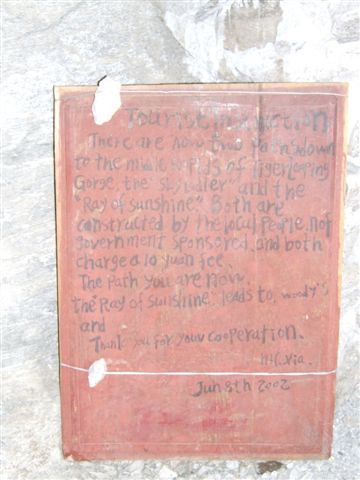 Tourist Instruction
There are now two Paths down
to the middle rapids of Tigerleaping
Gorge, the "sky ladder" and the
"Ray of sunshine." Both are
constructed by the local People, not
government sponsored, and both
charge a 10 yuan fee.
The Path you are now,
the "Ray of Sunshine" leads to woody's
and
Thank you for your cooperation.
Xia.
Jun 8th 2002